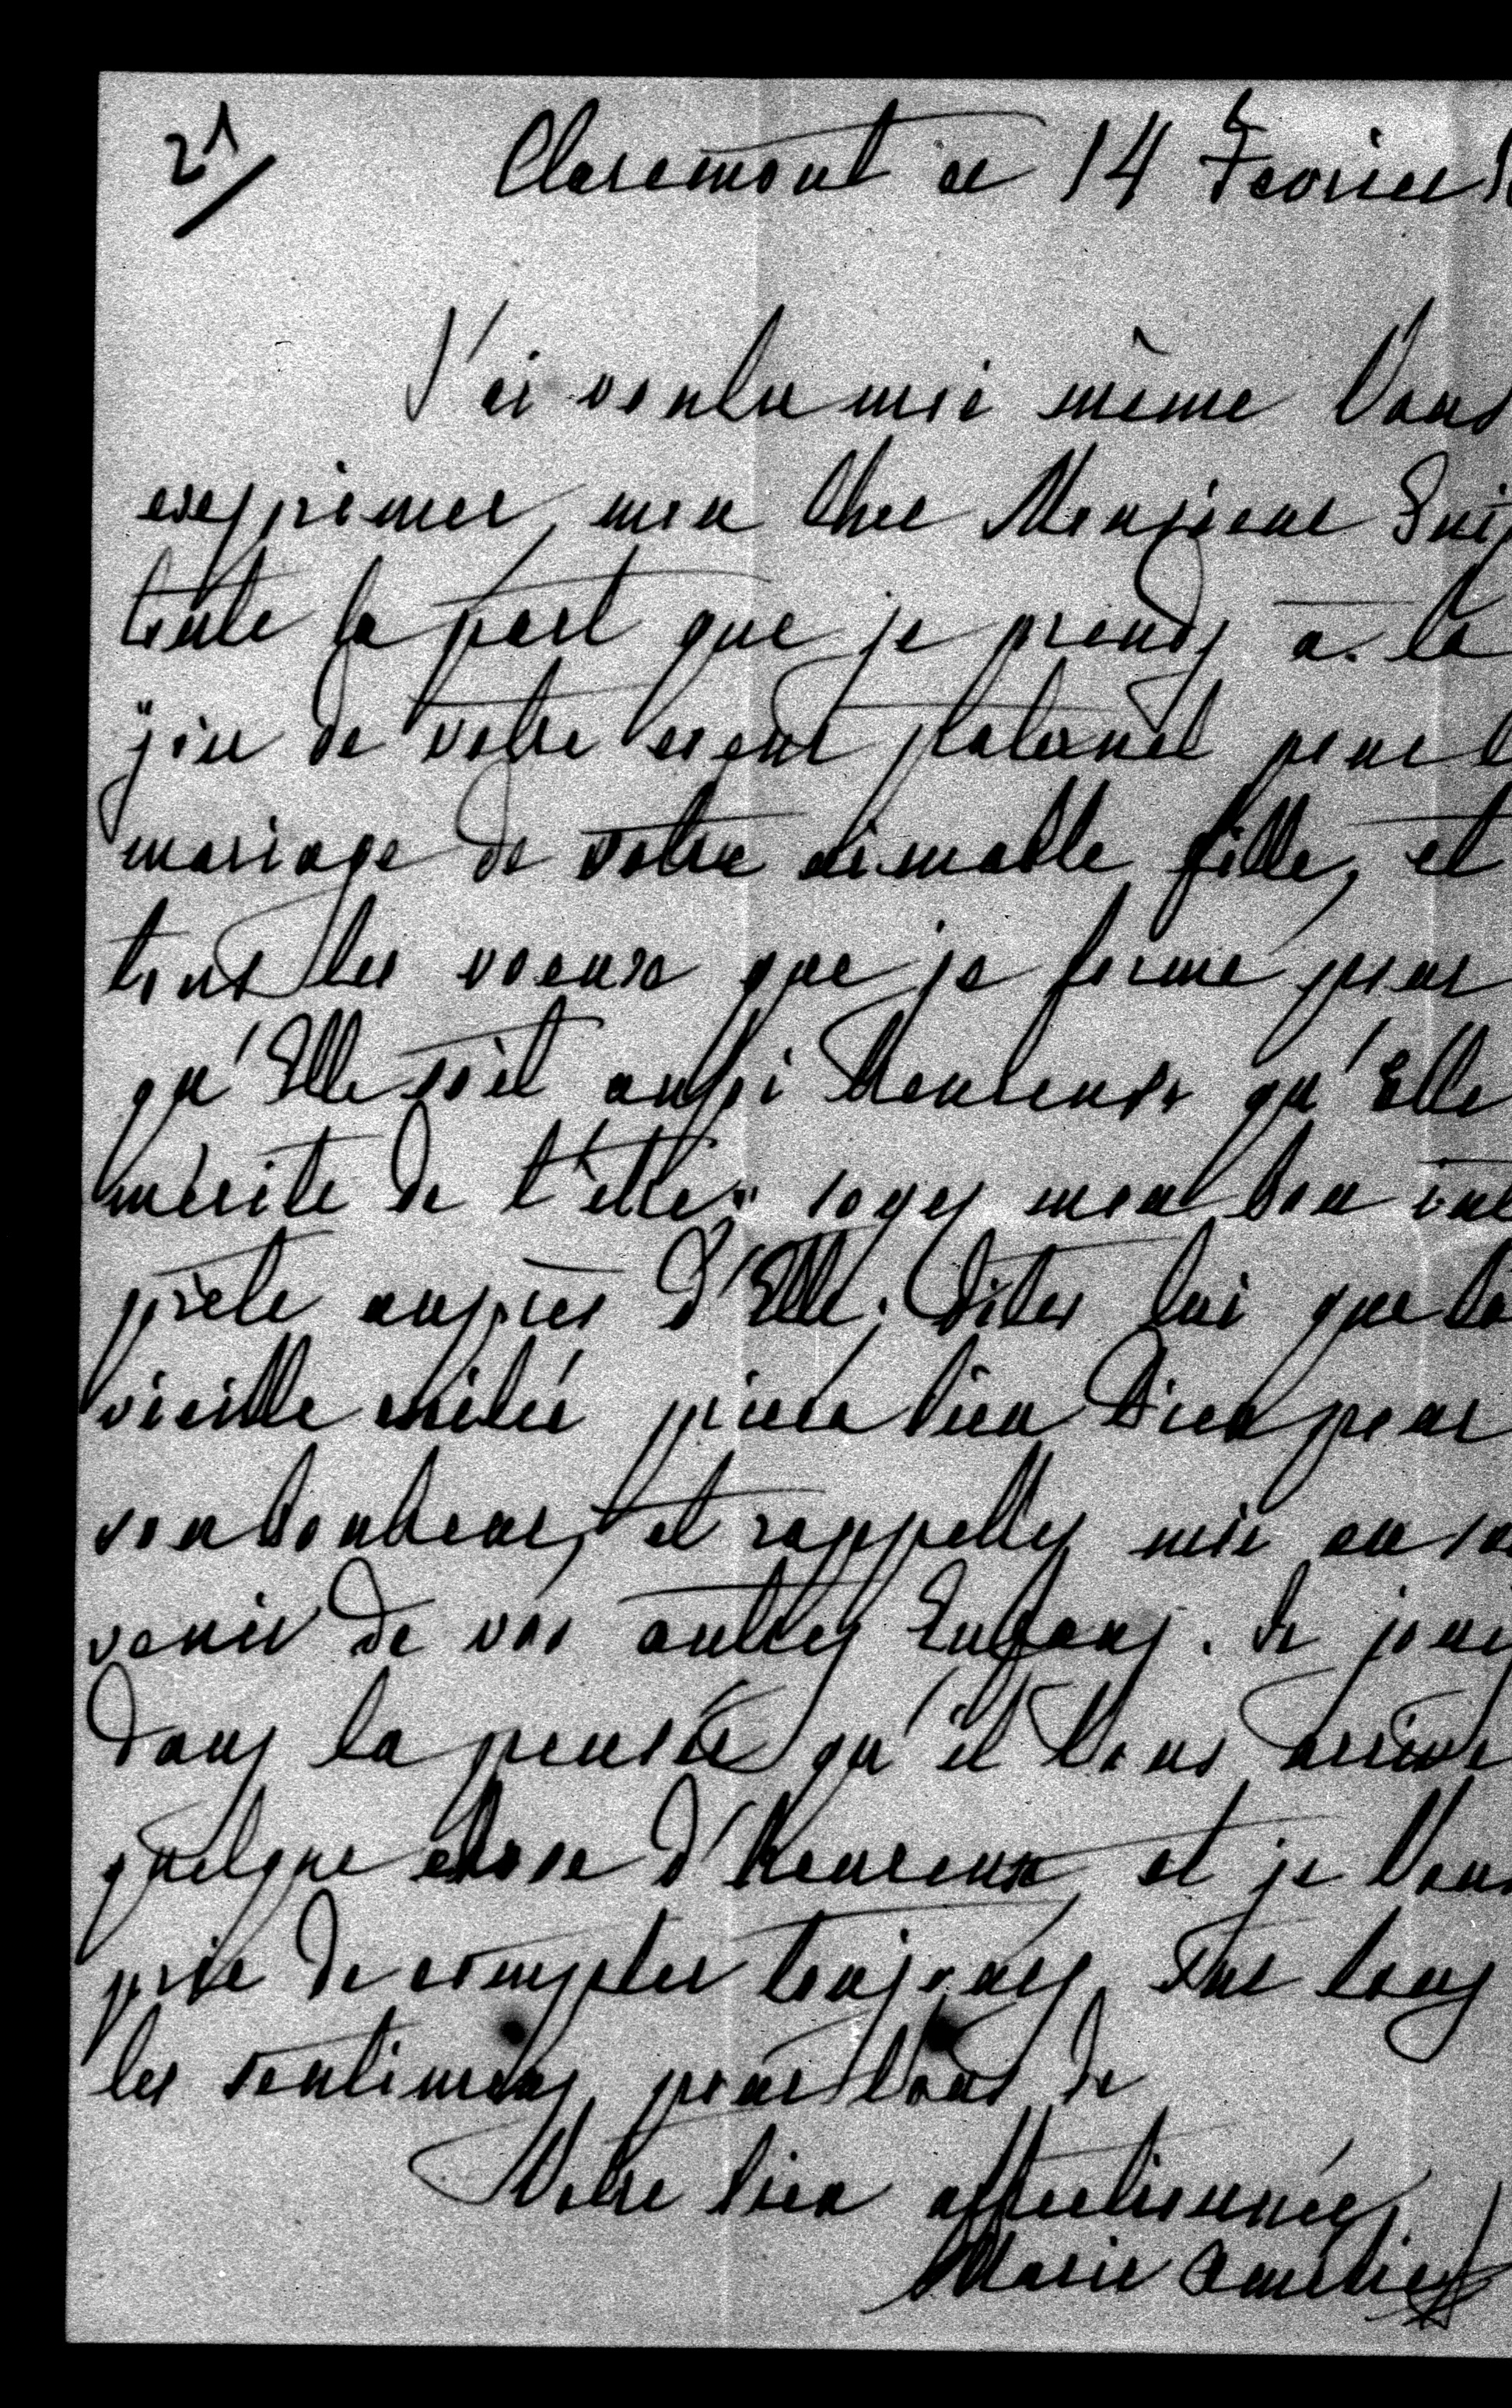 2
Claremont ce 14 Fevrier
J'ai voulu moi même Vous
exprimer, mon Cher Monsieur
toute la part que je prends a la
joie de votre cœur paternel pour l
mariage de votre aimable fille, et
tous les voeux que je forme pour
qu'Elle soit aussi heureuse qu'Elle
mérite de l'être; soyez mon bon
prête auprès d'Elle; dites lui que la
vieille exilée priera bien Dieu pour
son bonheur, et rappellez moi au sou
venir de vos autres Enfans. Je jouis
dans la pensée qu'il Vous arrive
quelque chose d'heureux, et je Vous
prie de compter toujours sur tous
les sentimens pour Vous de
Votre bien affectionnée
Marie Amélie